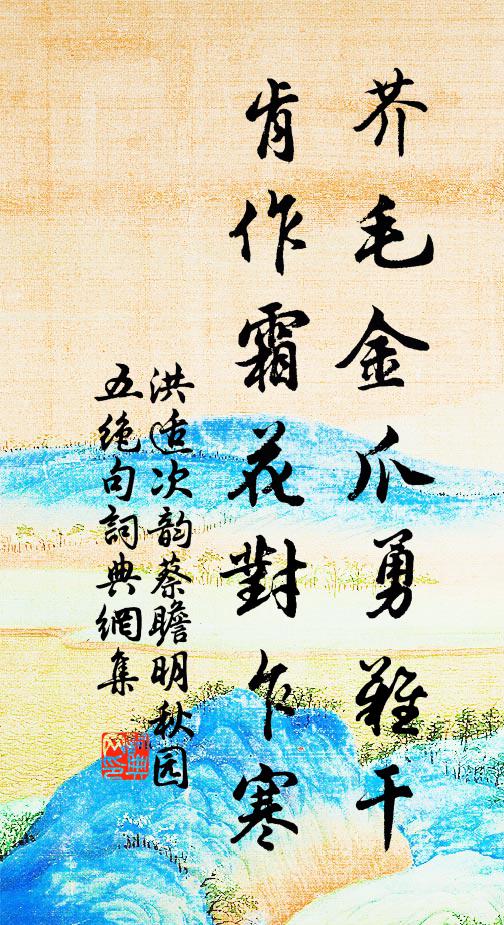 芥毛金爪勇難干
肯作霜花對乍寒
洪适次韵蔡瞻明秋园
五绝句詞典網集